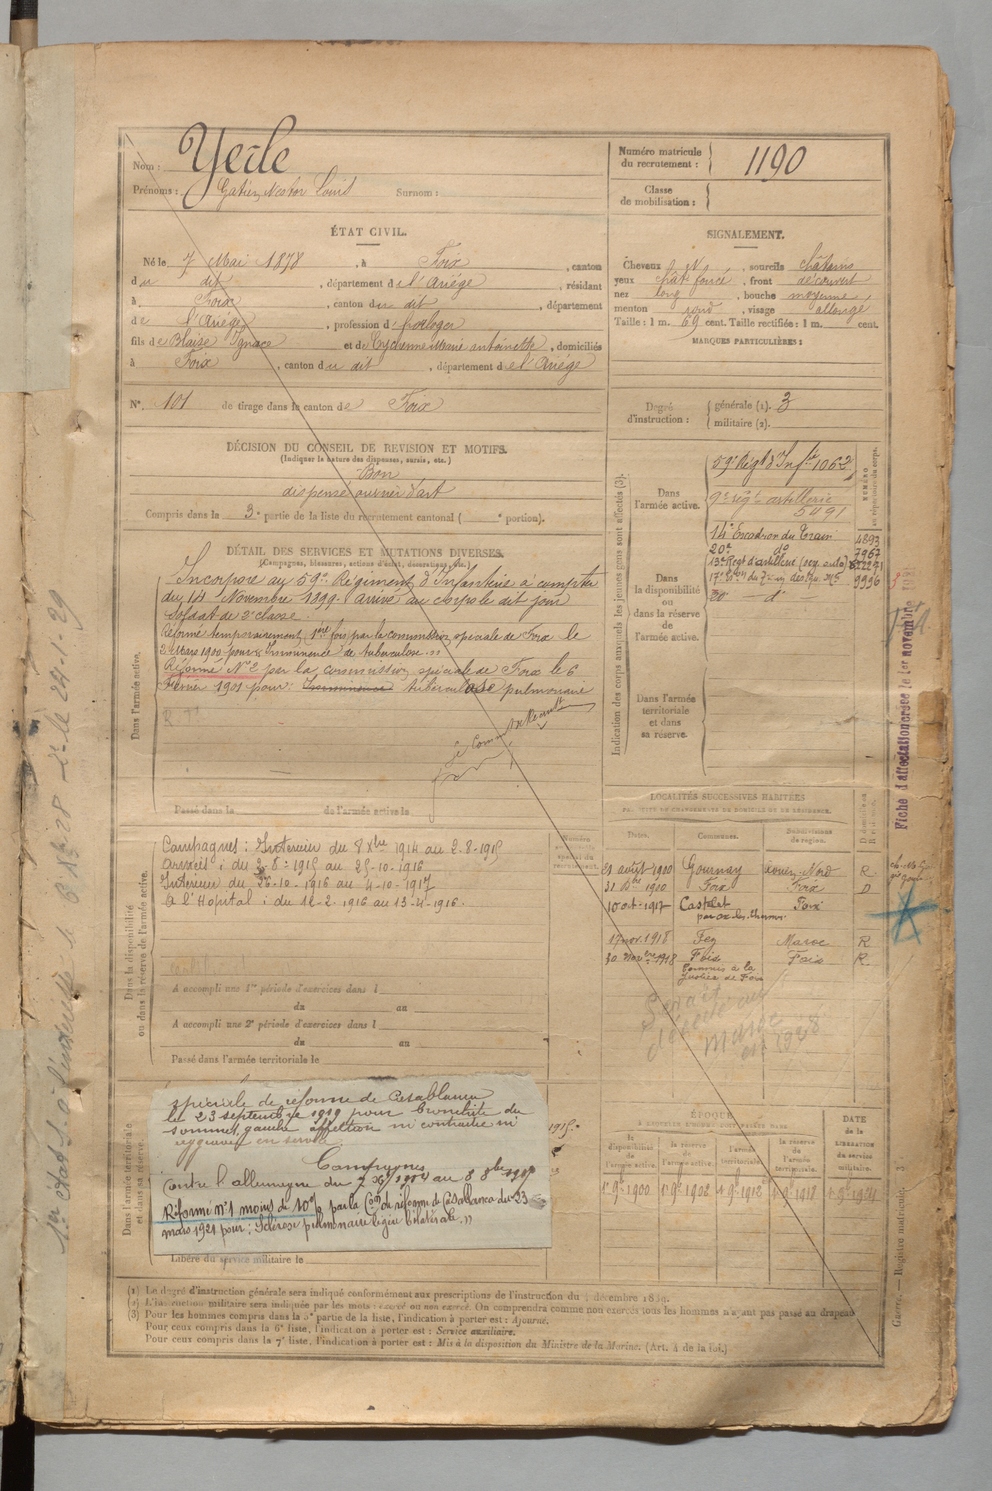 Nom : Yerle
Prénoms : Gatien Nestor Louis Surnom :
ÉTAT CIVIL.
Né le 7 Mai 1878, à Foix, canton
du dit, département de l'Ariége, résidant
à Foix, canton du dit, département
de l'Ariége, profession d'horloger
fils de Blaise Ignace et de Marie antoinette, domiciliés
à Foix, canton du dit, département de l'Ariége
N°. 101 de tirage dans le canton de Foix
DÉCISION DU CONSEIL DE REVISION ET MOTIFS.
(Indiquer la nature des dispenses, sursis, etc.)
Bon
dispensé ouvrier d'art
Compris dans la 3e partie de la liste du recrutement cantonal ( e portion).
DÉTAIL DES SERVICES ET MUTATIONS DIVERSES.
(Campagnes, blessures, actions d'éclat, décorations, etc.)
Dans l'armée active.
Incorporé au 59e Régiment d'Infanterie à compter
du 14 Novembre 1899. arrivé au corps le dit jour
soldat de 2e classe.
Réformé temporairement, 1ère fois par la commission spéciale de Foix le
2 Mars 1900 pour "Imminence de tuberculose."
Réformé N°2 par la commission spéciale de Foix le 6
Février 1901 pour: Imminence tuberculose pulmonaire
Passé dans la de l'armée active le
Dans la disponibilité
ou dans la réserve de l'armée active.
Campagnes : Intérieur du 8 Xbre 1914 au 2-8-1915
Armées : du 3-8-1915 au 25-10-1916
Intérieur du 26-10-1916 au 4-10-1917
à l'Hopital : du 12-2-1916 au 13-4-1916.
A accompli une 1re période d'exercices dans l
du au
A accompli une 2e période d'exercices dans l
du au
Passé dans l'armée territoriale le
Dans l'armée territoriale
et dans sa réserve.
spéciale de réforme de Casablanca
le 23 septembre 1919 pour bronchite du
sommet gauche affection ni contractée ni
aggravée en service
Campagnes
Contre l'allemagne du 7 Xbre 1914 au 8 8bre 1917
Réformé n°1 moins de 10% par la Con de réforme de Casablanca du 23
mars 1921 pour : "Sclérose pulmonaire légère bilatérale."
Libéré du service militaire le
Numéro matricule
du recrutement : 1190
Classe
de mobilisation :
SIGNALEMENT.
Cheveux N, sourcils châtains
yeux chat foncé, front découvert
nez long, bouche moyenne,
menton rond, visage allongé
Taille : 1 m. 69 cent. Taille rectifiée : 1 m. cent.
MARQUES PARTICULIÈRES :
Degré
d'instruction :
générale (1). 3
militaire (2).
Indication des corps auxquels les jeunes gens sont affectés (3).
NUMÉRO
au répertoire du corps.
Dans
l'armée active.
59e Régt d'Infie 1062
9e régt artillerie
5491
Dans
la disponibilité
ou
dans la réserve
de
l'armée active.
14e Escadron du Train 4893
20e do 7967
13e Regt d'artillerie (rég. auto)
9996
30 — do —
Dans l'armée
territoriale
et dans
sa réserve.
LOCALITÉS SUCCESSIVES HABITÉES
PAR SUITE DE CHANGEMENTS DE DOMICILE OU DE RÉSIDENCE.
Dates. Communes. Subdivisions
de région.
21 août 1900 Gournay Rouen-Nord R
31 Dbre 1900 Foix Foix D
10 oct. 1917 Castelet Foix
par Ax-les-Thermes
17 nov. 1918 Fez Maroc R
30 1918 Foix Foix R
Serait
décédé au
Maroc
en 1928
ÉPOQUE
la
disponibilité
de
l'armée active.
la réserve
de
l'armée active.
l'armée
territoriale.
la réserve
de
l'armée
territoriale.
DATE
de la
LIBÉRATION
du service
militaire.
1er 9bre 1900 1er 9bre 1902 1er 9bre 1912 1er 9bre 1918 1er 9bre 1924
(1) Le degré d'instruction générale sera indiqué conformément aux prescriptions de l'instruction du décembre 1889.
(2) L'instruction militaire sera indiquée par les mots : exercé ou non exercé. On comprendra comme non exercés tous les hommes n'ayant pas passé au drapeau
(3) Pour les hommes compris dans la 5e partie de la liste, l'indication à porter est : Ajourné.
Pour ceux compris dans la 6e liste, l'indication à porter est : Service auxiliaire.
Pour ceux compris dans la 7e liste, l'indication à porter est : Mis à la disposition du Ministre de la Marine. (Art. 4 de la loi.)
Fiche d'affectation créée le 1er novembre
Guerre. — Registre matricule. 3